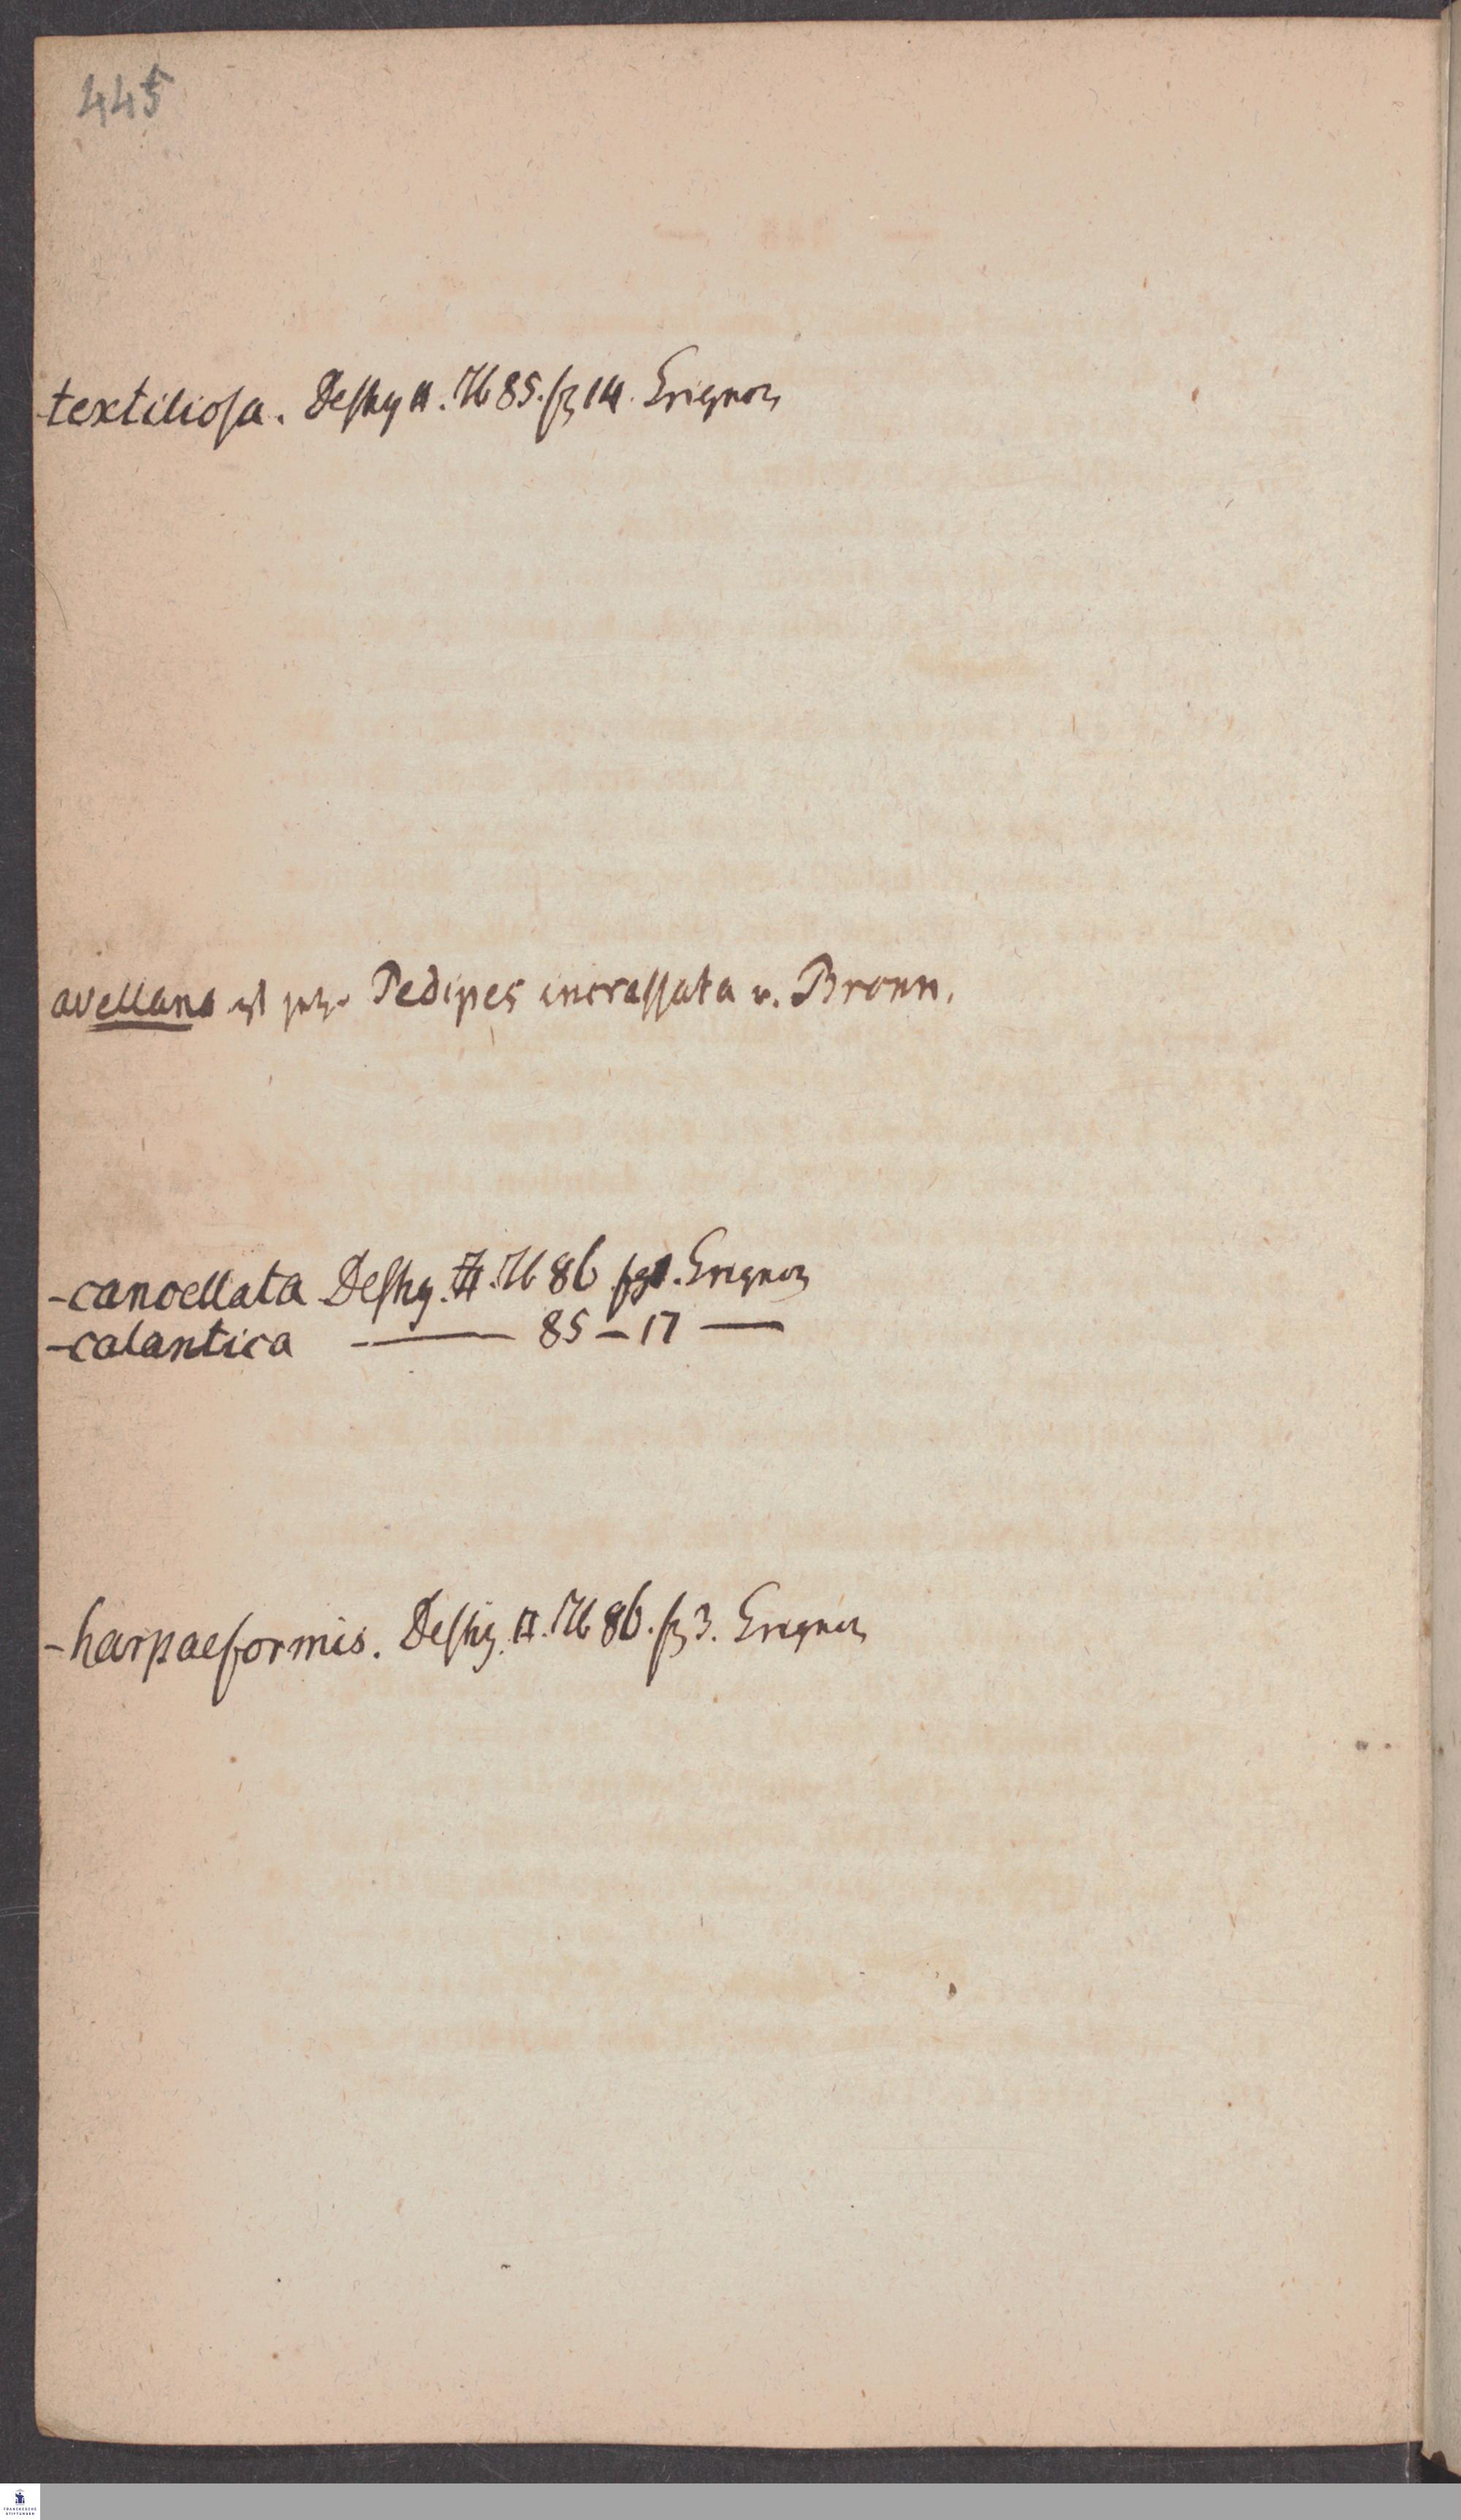 445
textiliosa. Deshy II. Tb 85. fg 14. Grignon
avellana ist jetzt Pedipes incrassata v. Bronn.
-cancellata Deshy. II. Tb 86 fg 1. Grignon
-calantica —— 85 – 17 ——
-harpaeformis. Deshy. II. Tb 86. fg 3. Grignon
FRANCKESCHE
STIFTUNGEN